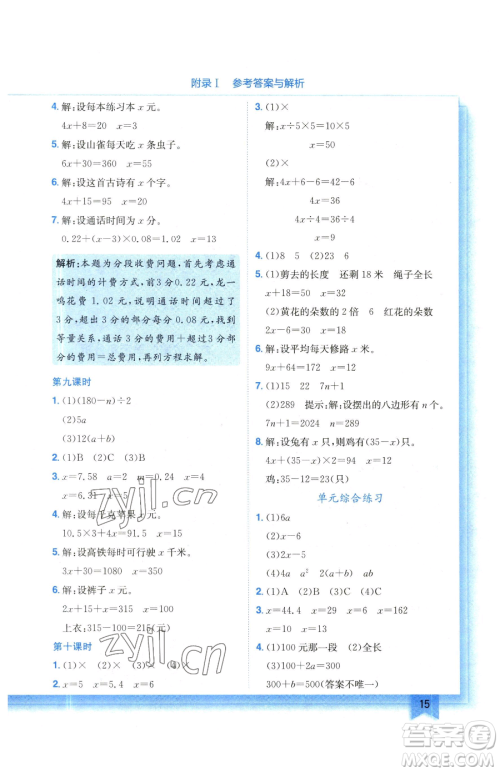 附录Ⅰ 参考答案与解析
4. 解:设每本练习本 x 元。
4x+8=20 x=3
5. 解:设山雀每天吃 x 条虫子。
6x+30=360 x=55
6. 解:设这首古诗有 x 字。
4x+15=95 x=20
7. 解:设通话时间为 x 分。
0.22+(x-3)×0.08=1.02 x=13
解析:本题为分段收费问题,首先考虑通
话时间的计费方式,前3分0.22元,龙一
鸣花费 1.02 元,说明通话时间超过了
3分,超过3分部分每分0.08元,所以
等量关系为前3分的费用+超过3分部
分的费用=总费用,再列方程求解。
第九课时
1. (1)(180-n)÷2
(2)5a
(3)12(a+b)
2. (1)B (2)C (3)C
3. x=7.58 a=2 m=0.24
x=0.93 x=4 x=8
4. 解:设每千克苹果 x 元。
10.5×3+4x=91.5 x=15
5. 解:设高铁每时可行驶 x 千米。
3x+30=1080 x=350
6. 解:设裤子 x 元。
2x+15+x=315 x=100
上衣:315-100=215(元)
第十课时
1. (1)× (2)× (3)× (4)×
2. x=5 x=9 x=13 x=8
3. (1)×
解:x÷5×5=10×5
x=50
(2)×
解:4x+6-6=42-6
4x=36
4x÷4=36÷4
x=9
4. (1)8 5 (2)23 6
5. (1)剪去的长度 还剩 18 米 绳子全长
x+18=30
(2)黄花的朵数的 2 倍 6 红花的朵数
2x-6=30
6. 解:设平均每天修路 x 米。
9x+64=172 x=12
7. (1)15 22 7n+1
(2)289 提示:解:设摆出的八边形有 n 个。
7n+1=2024 n=289
8. 解:设兔有 x 只,则鸡有(35-x)只。
4x+(35-x)×2=94 x=12
鸡:35-12=23(只)
单元综合练习
1. (1)6a
(2)x-6
(3)2x-5
(4)4a a² 2(a+b) ab
2. (1)A (2)A (3)A
3. x=44.4 x=25 x=162
x=63 x=6 x=16
4. (1)100 元那一段 (2)全长
(3)100+2a=300
300+b=500(答案不唯一)
15
zyjl.cn
zyjl.cn
答案圈
MXQE.COM